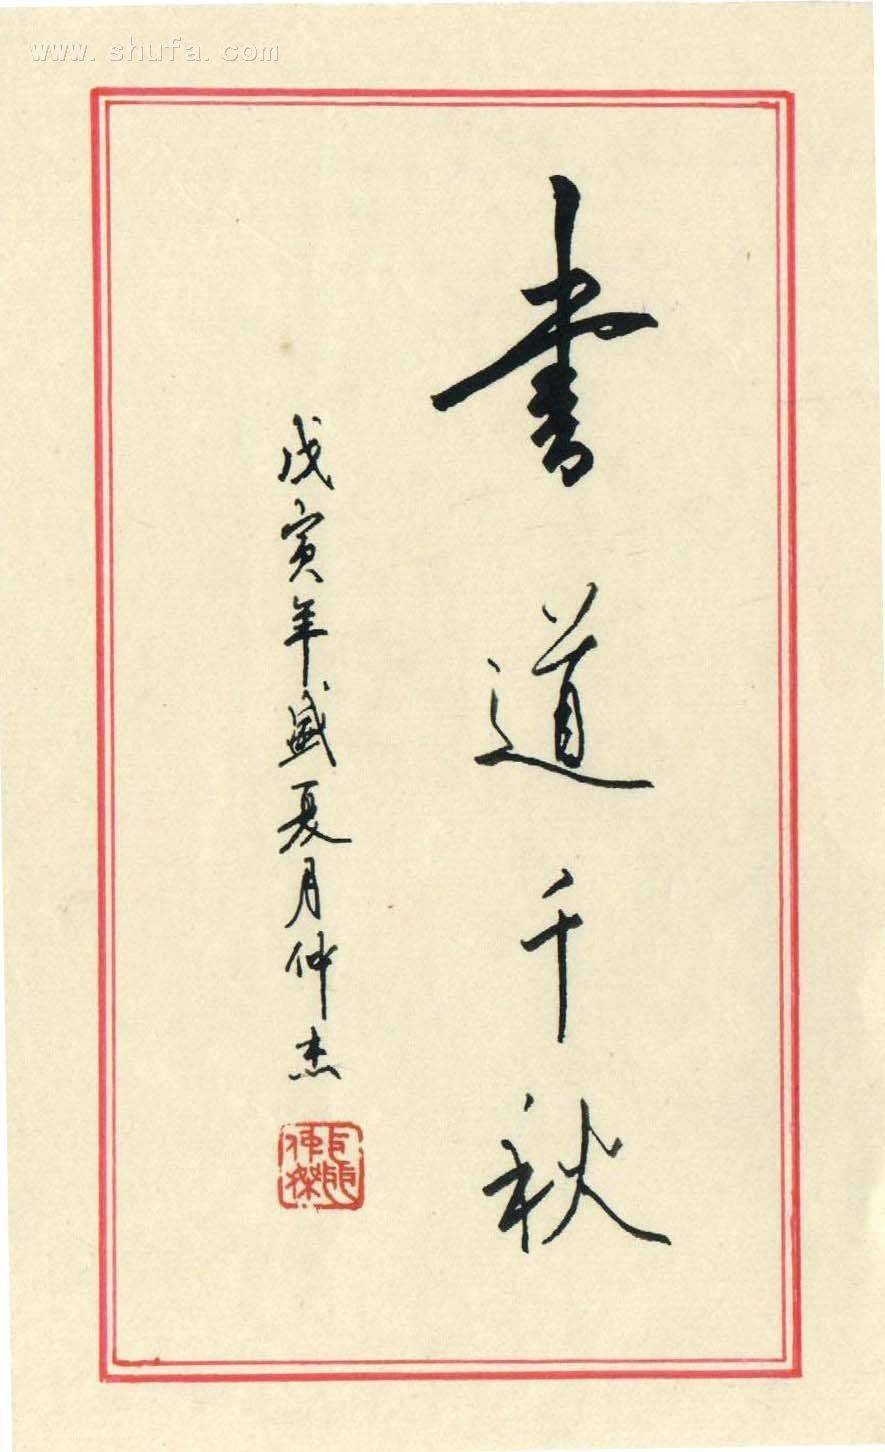 www.shufa.com
書道千秋
戊寅年盛夏月仲杰